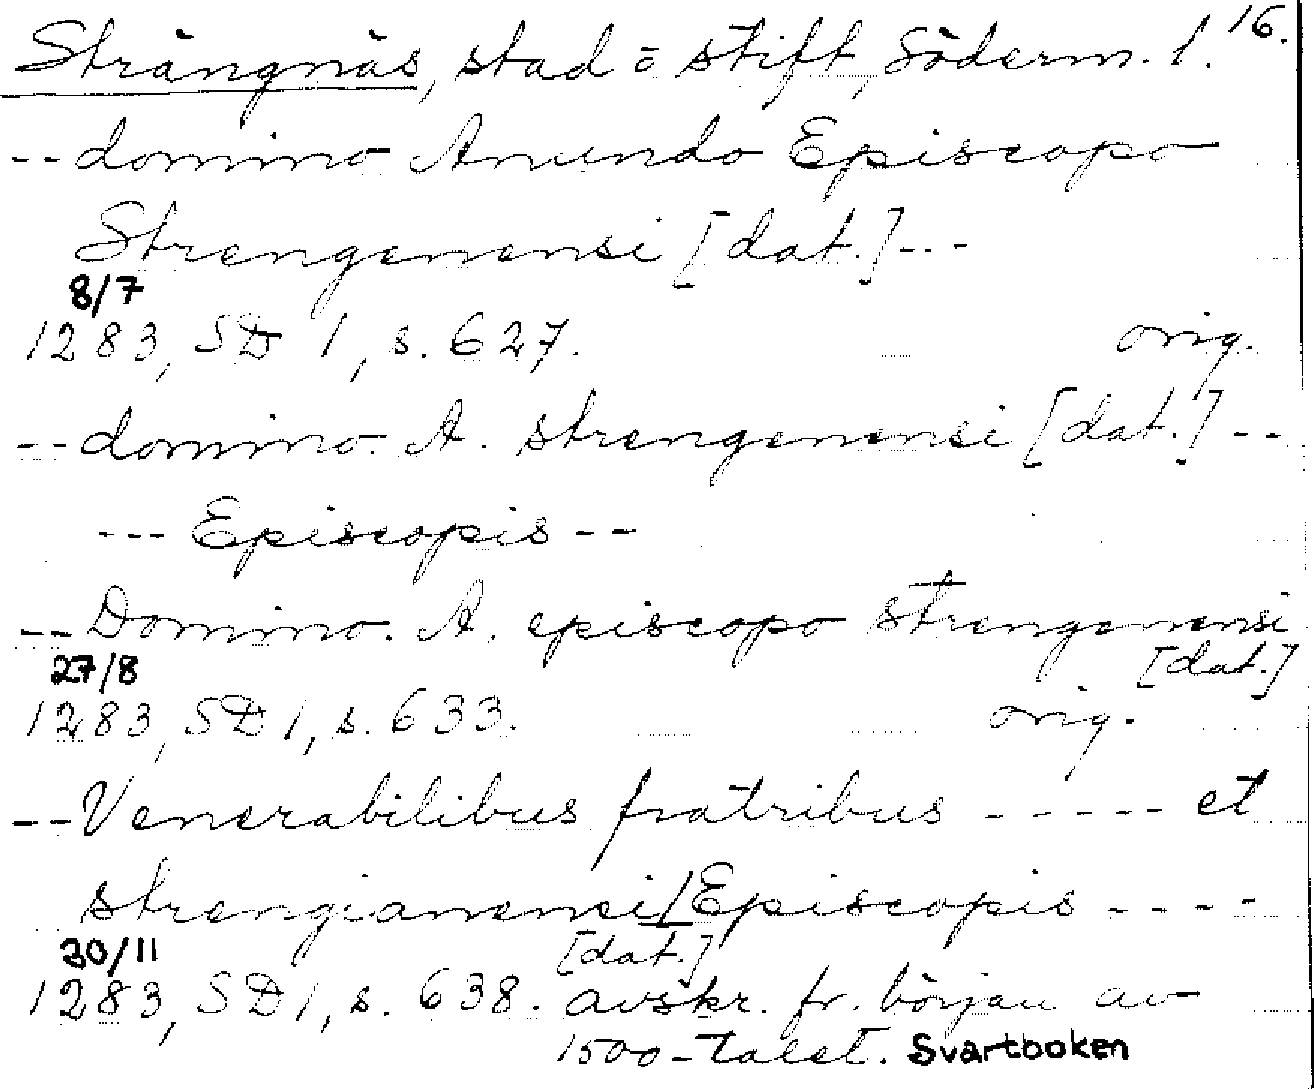 Strängnäs, stad o stift, Söderm. l. 16.
-- domino Anundo Episcopo
Strengenensi [dat.] ---
8/7
1283, SD 1, s. 627. orig.
-- domino. A. strengenensi [dat.] --
--- Episcopis --
-- Domino. A. episcopo strengenensi
27/8 [dat.]
1283, SD 1, s. 633. orig.
-- Venerabilibus fratribus ----- et
strengianensi / Episcopis ----
30/11 [dat.]
1283, SD 1, s. 638. avskr. fr. början av
1500-talet. Svartboken